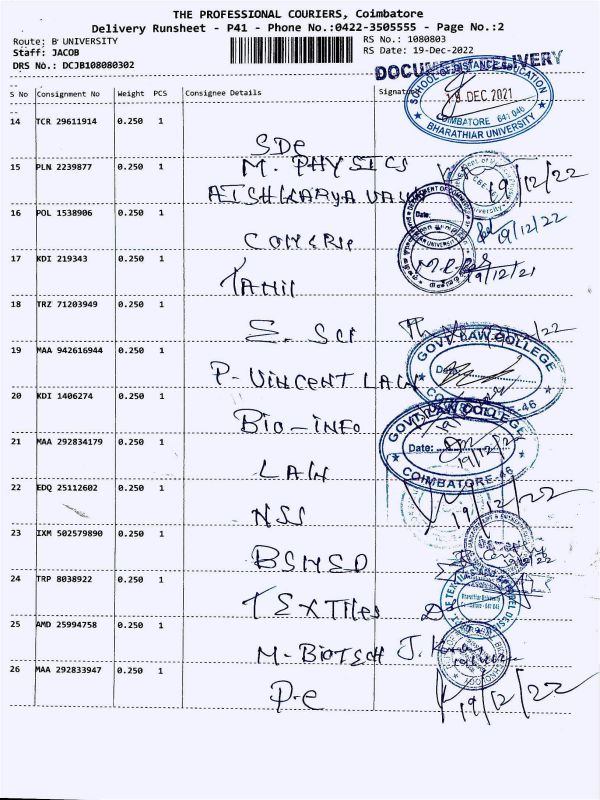 THE PROFESSIONAL COURIERS, Coimbatore
Delivery Runsheet - P41 - Phone No.:0422-3505555 - Page No.:2
Route: B UNIVERSITY
RS No.: 1080803
Staff: JACOB
RS Date: 19-Dec-2022
DRS No.: DCJB108080302
S No Consignment No Weight PCS Consignee Details
SCHOOL OF DISTANCE EDUCATION
DEC 2021
COIMBATORE 641 046
BHARATHIAR UNIVERSITY
14 TCR 29611914 0.250 1 SDE
15 PLN 2239877 0.250 1 M. PHYSICS 19/12/22
16 POL 1538906 0.250 1 COMERCE 19/12/22
17 KDI 219343 0.250 1 TAMIL 19/12/21
18 TRZ 71203949 0.250 1 E. SCI
19 MAA 942616944 0.250 1 P-VINCENT LAW
GOVT. LAW COLLEGE
Date:
20 KDI 1406274 0.250 1 BIO-INFO
GOVT. LAW COLLEGE
Date: 19/12/22
COIMBATORE-46
21 MAA 292834179 0.250 1 LAW
22 EDQ 25112602 0.250 1 NSS 19/12/22
23 IXM 502579890 0.250 1 BSMED
24 TRP 8038922 0.250 1 TEXTILES
25 AMD 25994758 0.250 1 M-BIOTECH
26 MAA 292833947 0.250 1 P.E 19/12/22